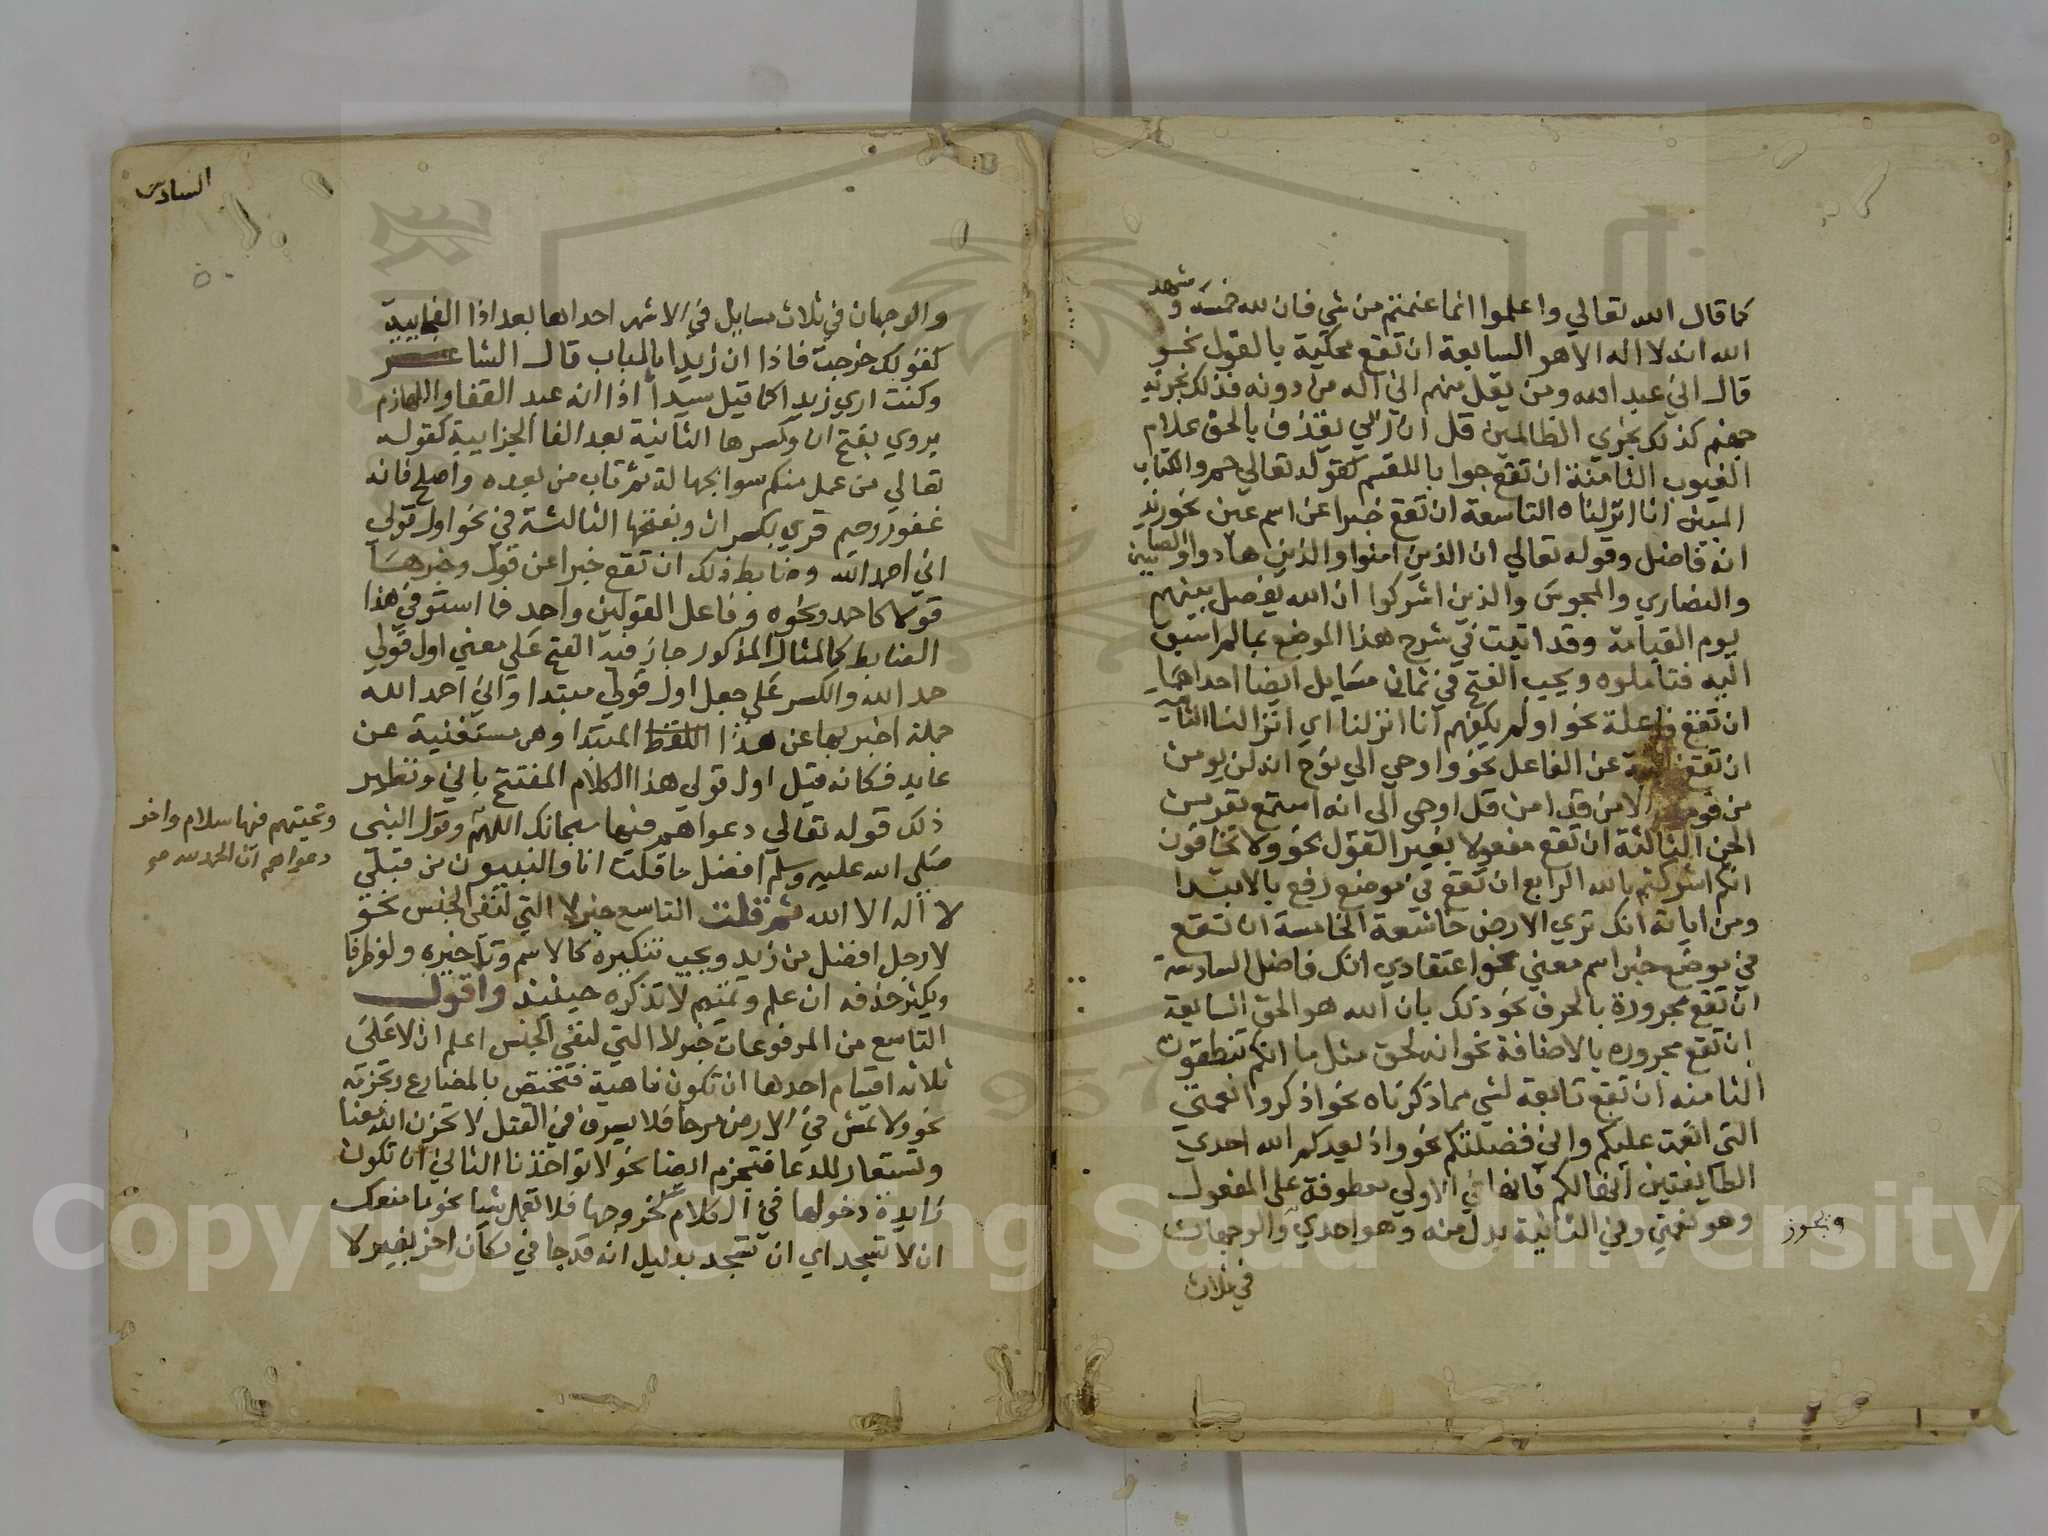 كما قال الله تعالي واعلموا انما غنمتم من شي فان لله خمسه وشهد
الله انه لا اله الا هو السابعة ان تقع محكية بالقول نحو
قال اني عبد الله ومن يقل منهم اني اله من دونه فذلك نجزيه
جهنم كذلك نجزي الظالمين قل ان ربي يقذف بالحق علام
الغيوب الثامنة ان تقع جوابا للقسم كقوله تعالي حم والكتاب
المبين انا انزلناه التاسعة ان تقع خبرا عن اسم عين نحو زيد
انه فاضل وقوله تعالي ان الذين امنوا والذين هادوا والصابين
والنصاري والمجوس والذين اشركوا ان الله يفصل بينهم
يوم القيامة وقد اتيت في شرح هذا الموضع بما لم اسبق
اليه فتاملوه ويجب الفتح في ثمان مسايل ايضا احداها
ان تقع فاعلة نحو اولم يكفهم انا انزلنا اي انزالنا الثانية
ان تقع نائبة عن الفاعل نحو واوحي الي نوح انه لن يومن
من قومك الا من قد امن قل اوحي الي انه استمع نفر من
الجن الثالثة ان تقع مفعولا بغير القول نحو ولا تخافون
انكم اشركتم بالله الرابع ان تقع في موضع رفع بالابتدا
ومن اياته انك تري الارض خاشعة الخامسة ان تقع
في موضع خبر اسم معني نحو اعتقادي انك فاضل السادسة
ان تقع مجرورة بالحرف نحو ذلك بان الله هو الحق السابعة
ان تقع مجروره بالاضافة نحو انه لحق مثل ما انكم تنطقون
الثامنه ان تقع تابعة لشي مما ذكرناه نحو اذكروا نعمتي
التي انعمت عليكم واني فضلتكم نحو واذ يعدكم الله احدي
الطايفتين انها لكم فانها في الاولي معطوفة علي المفعول
وهو نعمتي وفي الثانية بدل منه وهو احدي والوجهان
ويجوز
في ثلاث
السادس
٥٠
والوجهان في ثلاث مسايل في الاشهر احداها بعد اذا الفجاييية
كقولك خرجت فاذا ان زيدا بالباب قال الشاعر
وكنت اري زيدا كما قيل سيدا اذا انه عبد القفا واللهازم
يروي بفتح ان وكسرها الثانية بعد الفا الجزايية كقوله
تعالي من عمل منكم سوا بجهالة ثم تاب من بعده واصلح فانه
غفور رحيم قري بكسر ان وبفتحها الثالثة في نحو اول قولي
اني احمد الله وضابط ذلك ان تقع خبرا عن قول وخبرها
قولا كاحمد ونحوه وفاعل القولين واحد فما استوفي هذا
الضابط كالمثال المذكور جاز فيه الفتح علي معني اول قولي
حمد الله والكسر علي جعل اول قولي مبتدا واني احمد الله
جملة اخبر بها عن هذا اللفظ المبتدا وهي مستغنية عن
عايد فكانه قيل اول قولي هذا الكلام المفتتح باني ونظير
ذلك قوله تعالي دعواهم فيها سبحانك اللهم وقول النبي
وتحيتهم فيها سلام واخر
دعواهم ان الحمد لله صح
صلي الله عليه وسلم افضل ما قلت انا والنبيون من قبلي
لا اله الا الله ثم قلت التاسع خبر لا التي لنفي الجنس نحو
لا رجل افضل من زيد ويجب تنكيره كالاسم وتاخيره ولو ظرفا
ويكثر حذفه ان علم وتميم لا تذكره حينئذ واقول
التاسع من المرفوعات خبر لا التي لنفي الجنس اعلم ان لا علي
ثلاثه اقسام احدها ان تكون ناهية فتختص بالمضارع وتجزمه
نحو ولا تمش في الارض مرحا فلا يسرف في القتل لا تحزن ان الله معنا
وتستعار للدعا فتجزم ايضا نحو لا تواخذنا الثاني ان تكون
زايدة دخولها في الكلام كخروجها فلا تعمل شيا نحو ما منعك
ان لا تسجد اي ان تسجد بدليل انه قد جا في مكان اخر بغير لا